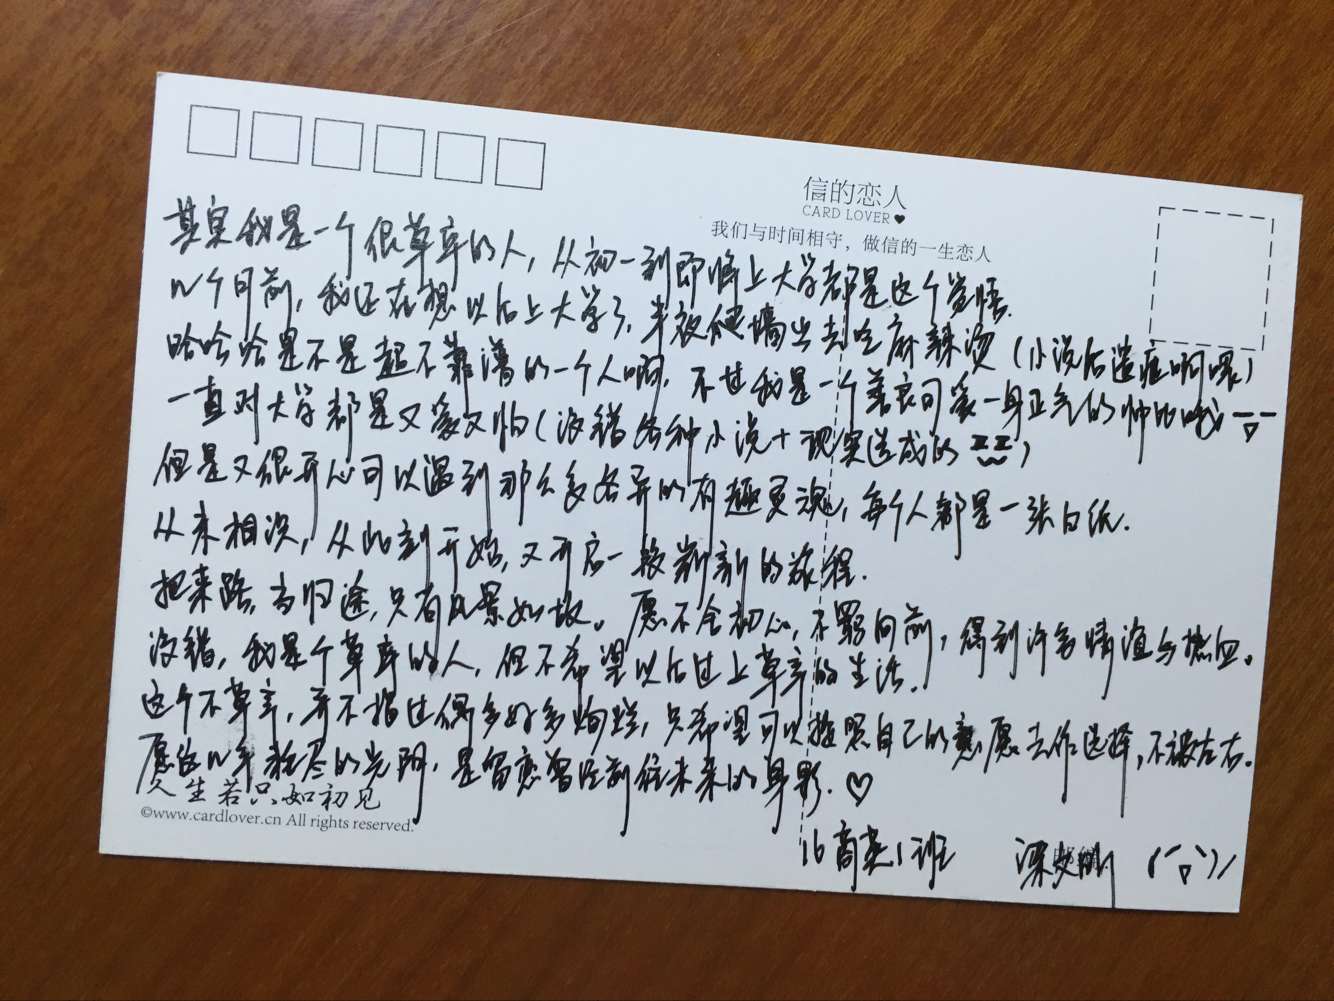 信的恋人
CARD LOVER
我们与时间相守，做信的一生恋人
其实我是一个很草率的人，从初一到即将上大学都是这个觉悟.
几个月前，我还在想以后上大学了，半夜爬墙出去吃麻辣烫（小说后遗症啊喂）
哈哈哈是不是超不靠谱的一个人啊，不过我是一个善良可爱一身正气的帅比呢
一直对大学都是又爱又怕（没错各种小说+现实造成的）
但是又很开心可以遇到那么多各异的有趣灵魂，每个人都是一张白纸.
从未相识，从此刻开始，又开启一段崭新的旅程.
把来路当归途，只有风景如故。愿不舍初心，不羁向前，得到许多情谊与热血。
没错，我是个草率的人，但不希望以后过上草率的生活.
这个不草率，并不指过得多好多绚烂，只希望可以按照自己的意愿去作选择，不被左右.
愿这几年我尽的光阴，是留恋曾经前往未来的身影.♡
人生若只如初见
©www.cardlover.cn All rights reserved.
16商英1班 梁